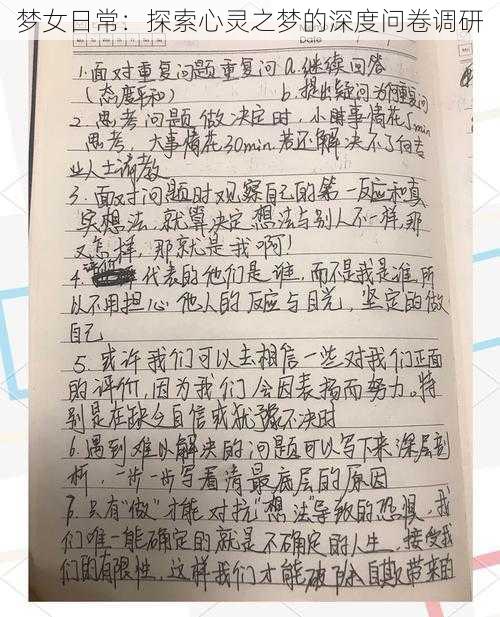 梦女日常：探索心灵之梦的深度问卷调研
Date
1.面对重复问题重复问 a.继续回答
（态度平和） b.提出疑问为何重复问
2.思考问题做决定时，小事情花5min
思考，大事情花30min.若还解决不了向专
业人士请教
3.面对问题时观察自己的第一反应和真
实想法，就算决定想法与别人不一样，那
又怎样，那就是我啊！
4.评价代表的他们是谁，而不是我是谁，所
以不用担心他人的反应与目光，坚定的做
自己
5.或许我们可以去相信一些对我们正面
的评价，因为我们会因表扬而努力。特
别是在缺乏自信或犹豫不决时
6.遇到难以解决的问题可以写下来深层剖
析，一步一步写看清最底层的原因
7.只有“做”才能对抗“想法”导致的恐惧，我
们唯一能确定的就是不确定的人生，接受我
们的有限性，这样我们才能破除自欺带来的